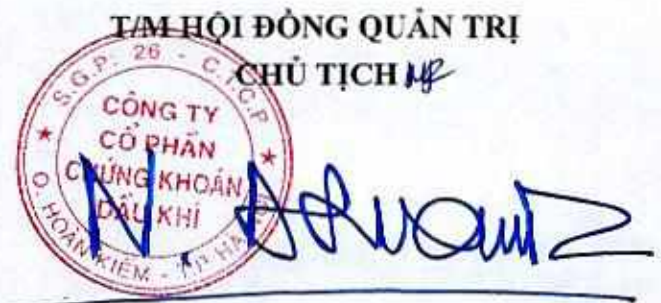 T/M HỘI ĐỒNG QUẢN TRỊ
CHỦ TỊCH
S.G.P: 26 - C.T.C.P
CÔNG TY
CỔ PHẦN
CHỨNG KHOÁN
DẦU KHÍ
Q. HOÀN KIẾM - T.P HÀ NỘI